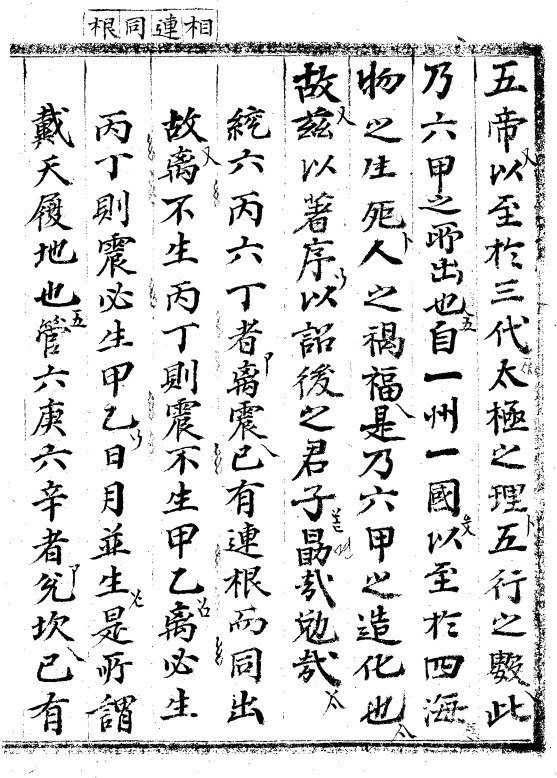 相連同根
五帝以至於三代太極之理五行之數此
乃六甲之所出也自一州一國以至於四海
物之生死人之禍福是乃六甲之造化也
故玆以著序以詔後之君子勗哉勉哉
統六丙六丁者离震已有連根而同出
故离不生丙丁則震不生甲乙离必生
丙丁則震必生甲乙日月並生是所謂
戴天履地也管六庚六辛者兌坎已有